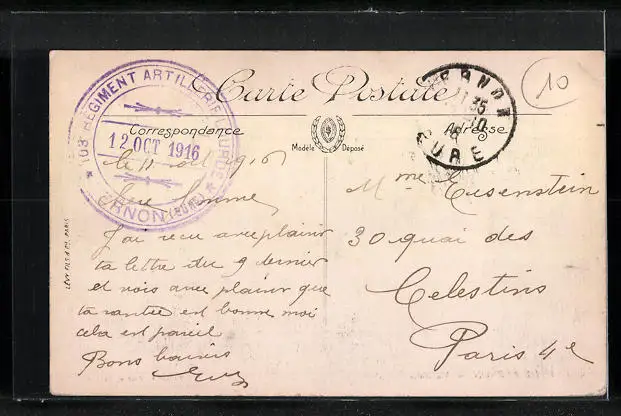 Carte Postale
Correspondance
Adresse
Modèle Déposé
103e REGIMENT ARTILLERIE LOURDE
12 OCT 1916
VERNON (EURE)
VERNON
EURE
10
LEVY FILS & Cie, PARIS
le 11 oct 1916
Chère femme
J'ai reçu avec plaisir
ta lettre du 9 dernier
et vois avec plaisir que
ta santée est bonne moi
cela est pareil
Bons baisers
Mme Eisenstein
30 quai des
Celestins
Paris 4e